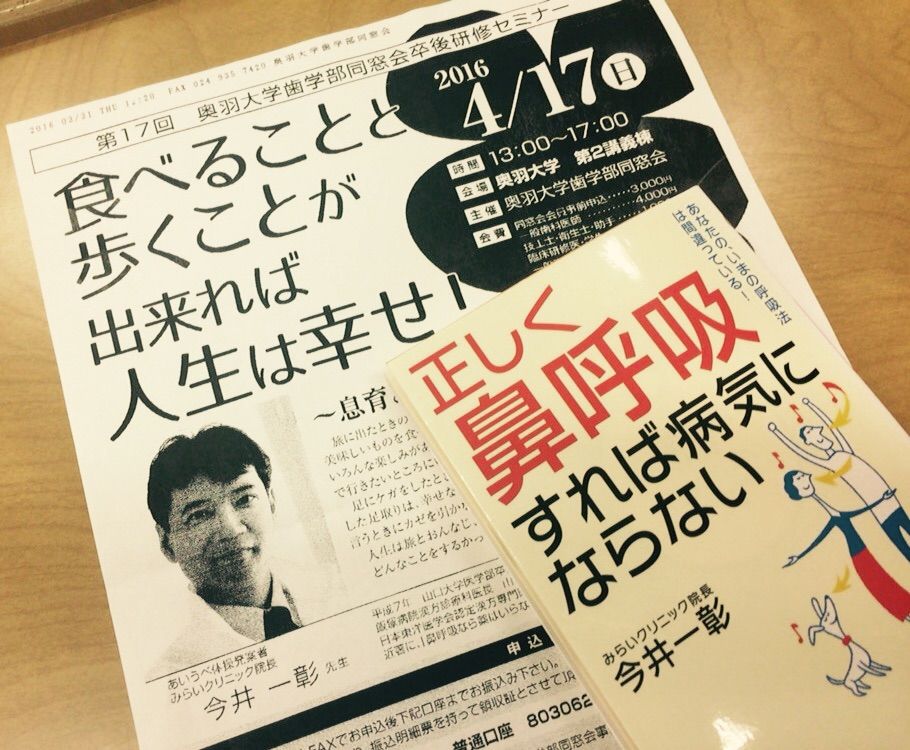 2016 03/31 THU 1 :20 FAX 024 935 7420 奥羽大学歯学部同窓会
第17回 奥羽大学歯学部同窓会卒後研修セミナー
2016
4/17日
時間 13:00〜17:00
会場 奥羽大学 第2講義棟
主催 奥羽大学歯学部同窓会
会費 同窓会会員事前申込……3,000円
一般歯科医師………4,000円
技工士・衛生士・助手
臨床研修医・学
食べることと
歩くことが
出来れば
人生は幸せ!
〜息育
旅に出たときの
美味しいものを食
いろんな楽しみがあ
で行きたいところに
足にケガをしたと
した足取りは、幸せな
言うときにカゼを引か
人生は旅とおんなじ、
どんなことをするかっ
平成7年 山口大学医学部卒
飯塚病院漢方診療科医長
日本東洋医学会認定漢方専門
近著に、「鼻呼吸なら薬はいらな
あいうべ体操発案者
みらいクリニック院長
今井 一彰 先生
申込
FAXでお申込後下記口座までお振込み下さい。
振込明細票を持って領収証とさせて
普通口座 803062
奥羽大学歯学部同窓会事
あなたの、いまの呼吸法
は間違っている!
正しく
鼻呼吸
すれば病気に
ならない
みらいクリニック院長
今井一彰